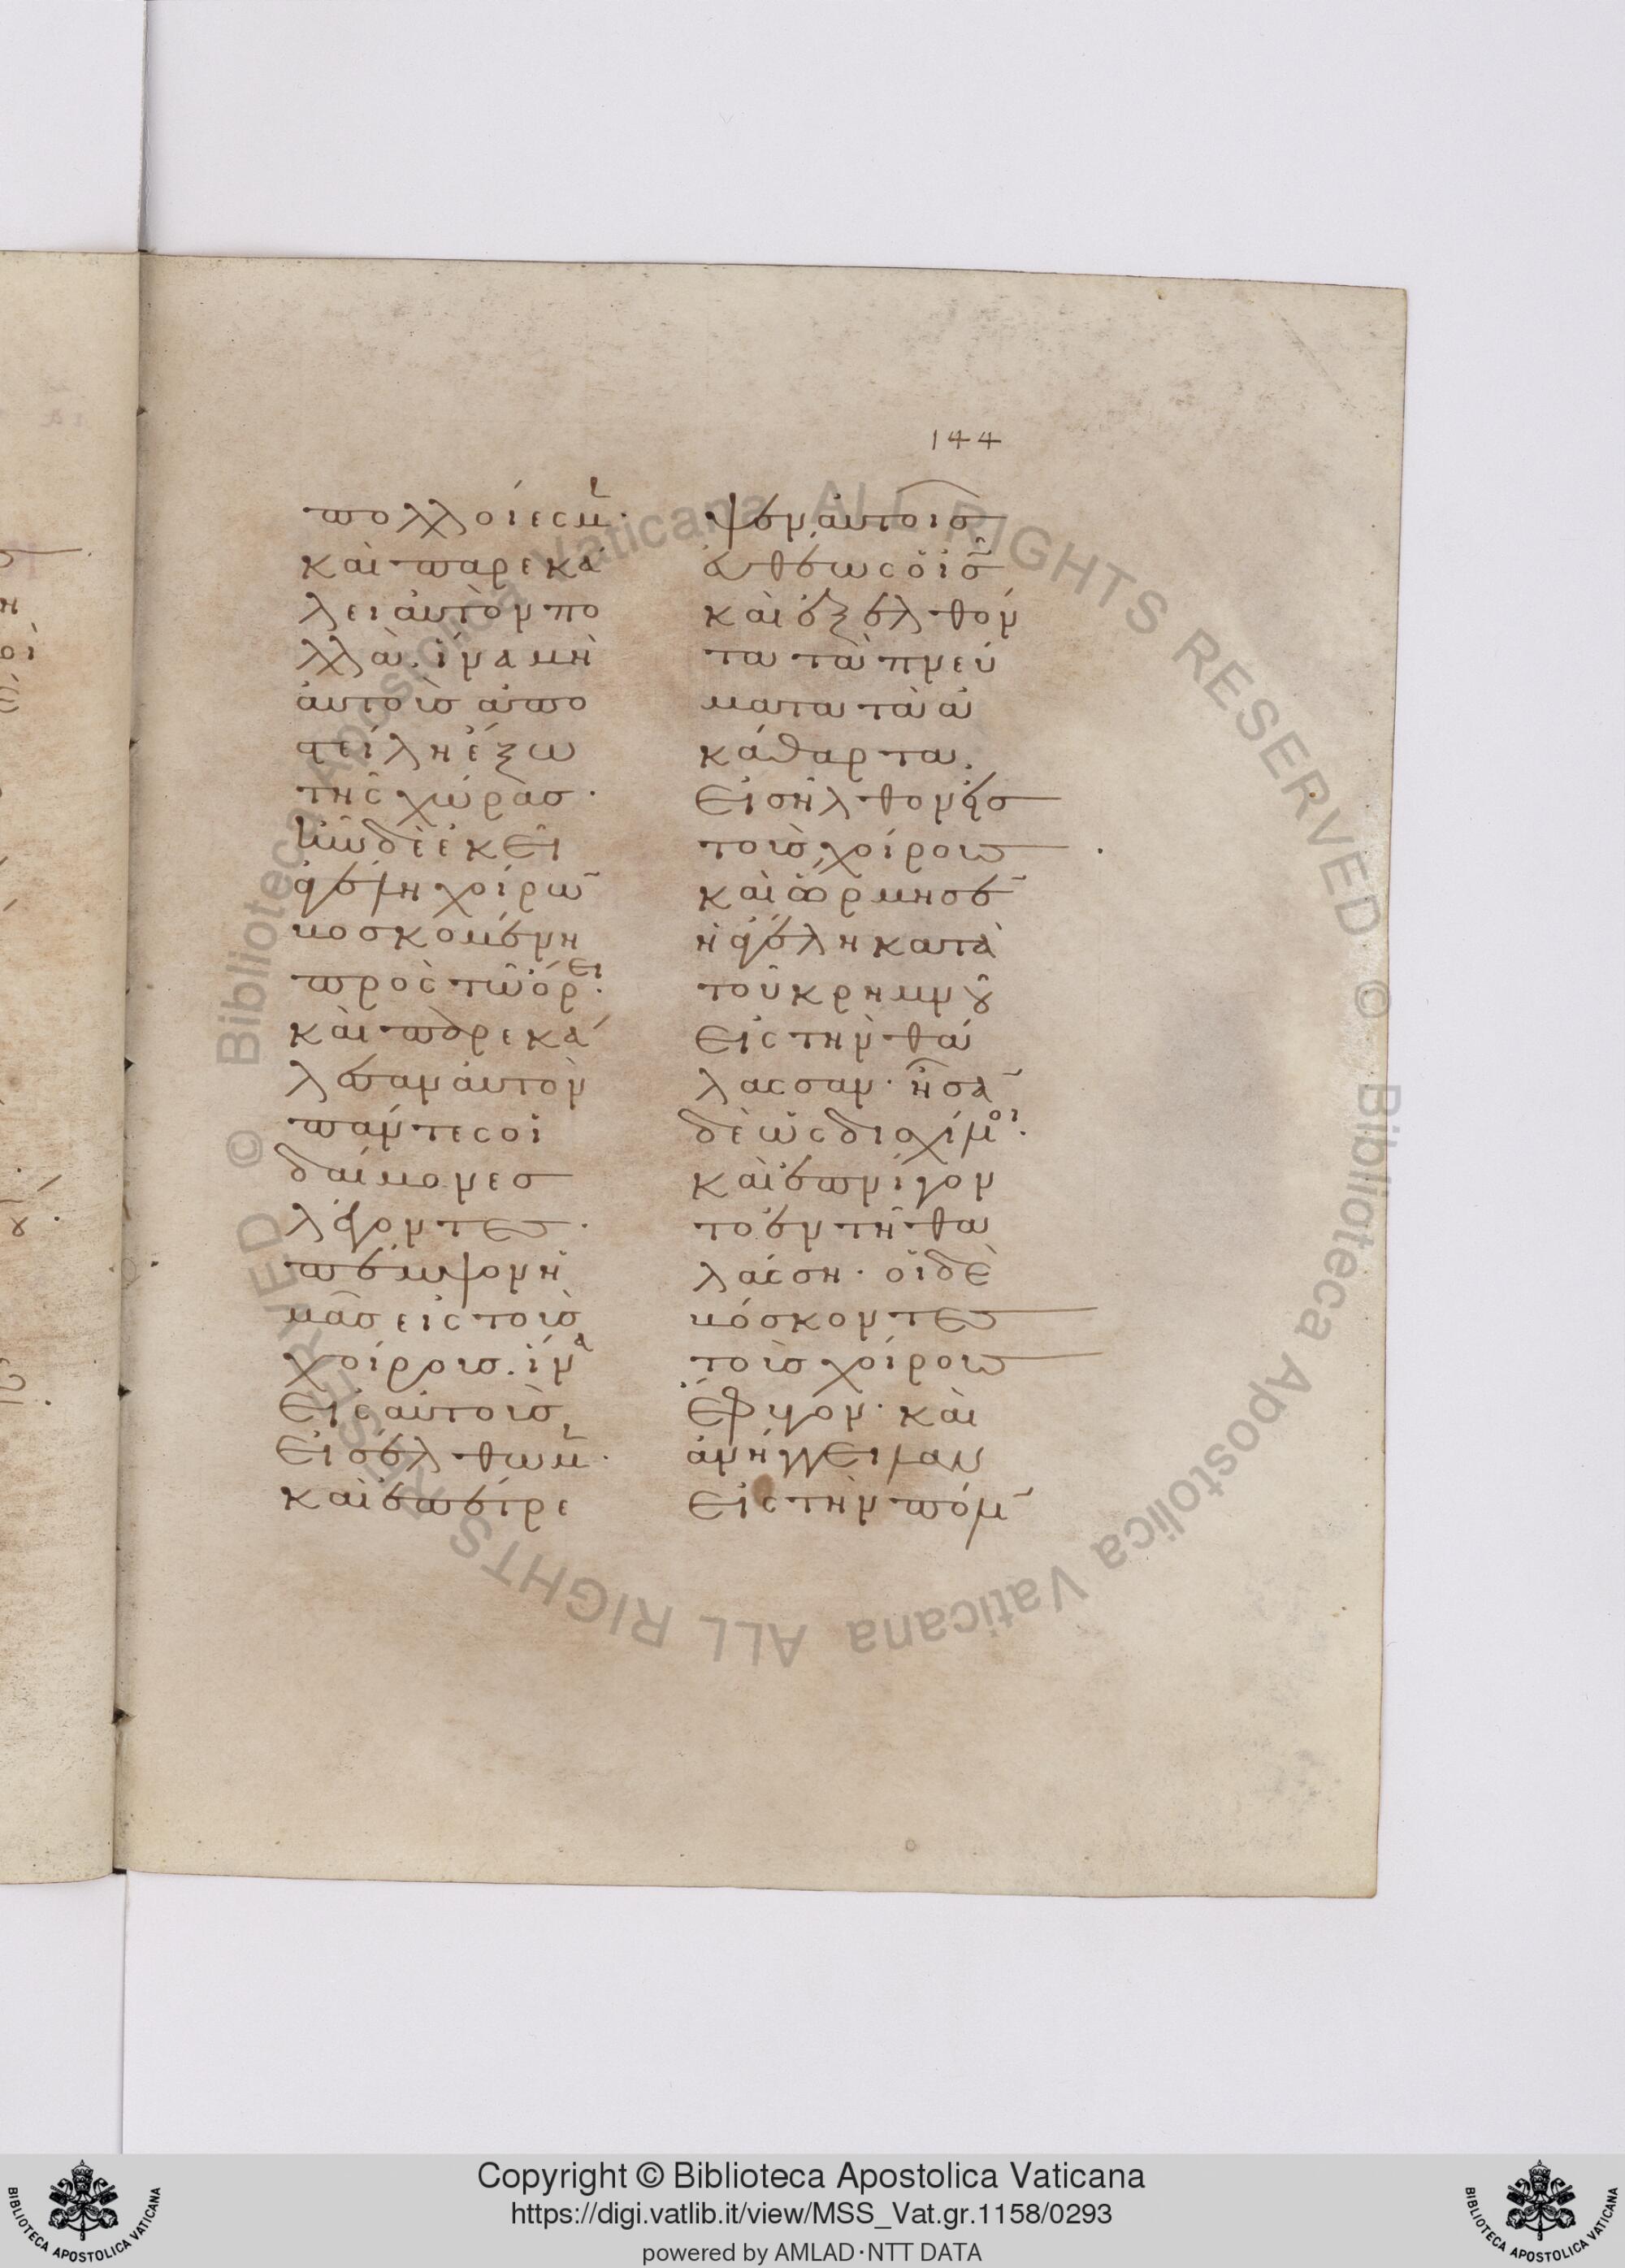 144
πολλοί ἐσμ̅·
καὶ παρεκά
λει αὐτὸν πο
λλὰ. ἵνα μὴ
αὐτοὺς ἀπο
στείλη ἔξω
τῆς χώρας·
ἦν δὲ ἐκεῖ
ἀγέλη χοίρω̅
βοσκομένη
πρὸς τῶ ὄρει·
καὶ παρεκά
λεσαν αὐτὸν
πάντες οἱ
δαίμονες
λέγοντες·
πέμψον ἡ
μᾶς εἰς τοὺς
χοίρους. ἵνα
εἰς αὐτοὺς
εἰσέλθωμ̅·
καὶ ἐπέτρε
ψεν αὐτοῖς
εὐθέως ὁ ις̅
καὶ ἐξελθόν
τα τὰ πνεύ
ματα τὰ ἀ
κάθαρτα.
εἰσῆλθον εἰς
τοὺς χοίρους
καὶ ὥρμησε̅
ἡ ἀγέλη κατὰ
τοῦ κρημνοῦ
εἰς τὴν θά
λασσαν· ἦσα̅
δὲ ὡς δισχίλιοι·
καὶ ἐπνίγον
το ἐν τῆ θα
λάσση· οἱ δὲ
βόσκοντες
τοὺς χοίρους
ἔφυγον· καὶ
ἀνήγγειλαν
εἰς τὴν πόλι̅
© Biblioteca Apostolica Vaticana ALL RIGHTS RESERVED © Biblioteca Apostolica Vaticana ALL RIGHTS RESERVED
Copyright © Biblioteca Apostolica Vaticana
https://digi.vatlib.it/view/MSS_Vat.gr.1158/0293
powered by AMLAD·NTT DATA
BIBLIOTECA APOSTOLICA VATICANA
BIBLIOTECA APOSTOLICA VATICANA